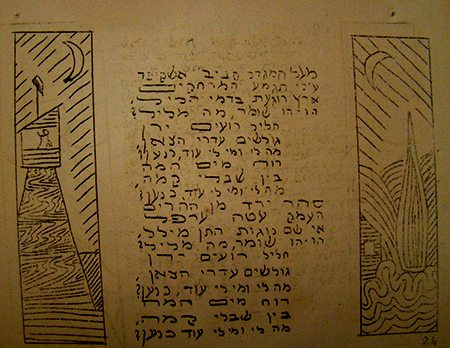 מעל המגדל סביב אשקיפה
עיני תגמע המרחקים
ארץ רוגעת בדמי הליל,
הו-הו שומר, מה מליל?
חליל רועים ירן
גולשים עדרי הצאן
מה לי ומי לי עוד, כנען?
רוח מים המה
בין שבלי קמה,
מה לי ומי לי עוד, כנען?
סהר ירד מן ההרים
העמק עטה ערפל
אי שם נוגות התן מילל,
הו-הו שומר, מה מליל?
חליל רועים ירן
גולשים עדרי הצאן
מה לי ומי לי עוד, כנען?
רוח מים המה
בין שבלי קמה,
מה לי ומי לי עוד כנען?